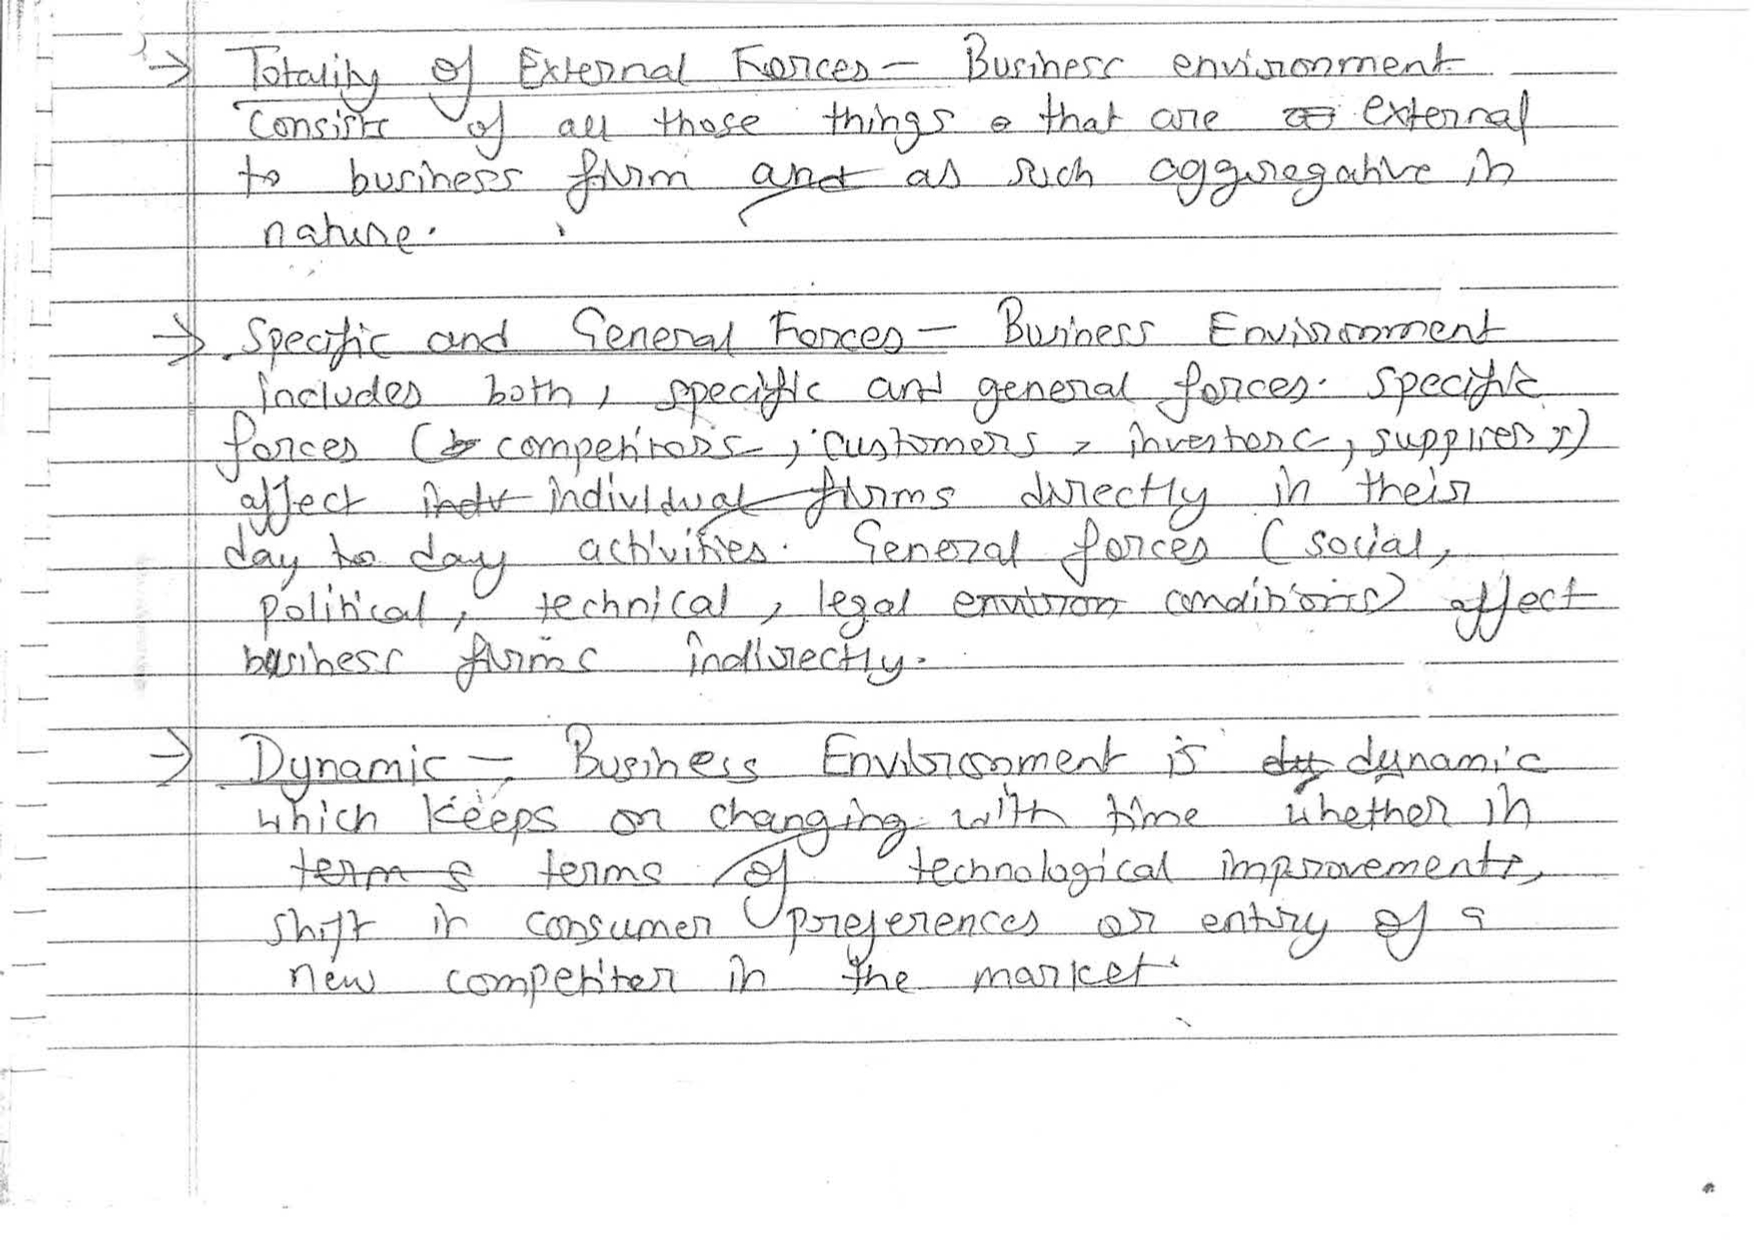 → Totality of External Forces - Business environment
consists of all those things that are external
to business firm and as such aggregative in
nature.
→ Specific and General Forces - Business Environment
includes both, specific and general forces. Specific
forces (competitors, customers, investors, suppires)
affect individual firms directly in their
day to day activities. General forces (social,
political, technical, legal conditions) affect
business firms indirectly.
→ Dynamic - Business Environment is dynamic
which keeps on changing with time whether in
terms of technological improvements,
shift in consumer preferences or entry of a
new competiter in the market.